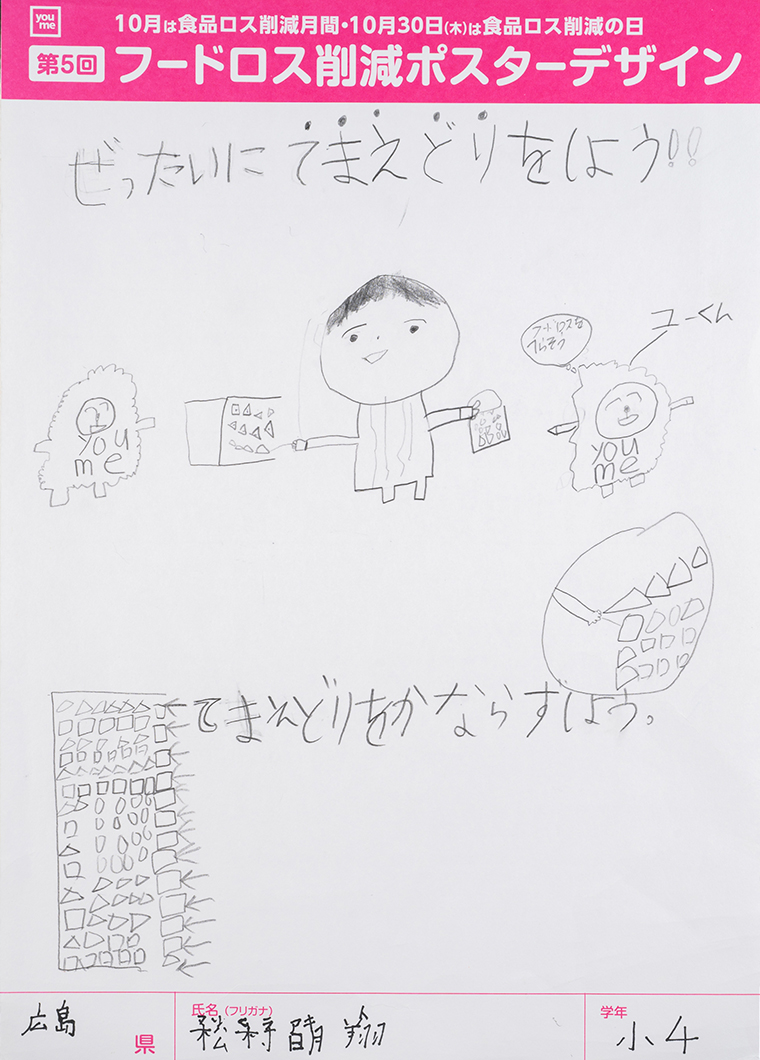 you
me
10月は食品ロス削減月間・10月30日(木)は食品ロス削減の日
第5回 フードロス削減ポスターデザイン
ぜったいにてまえどりをしよう!!
ユーくん
フードロスを
へらそう
you
me
you
me
てまえどりをかならずしよう。
広島 県
氏名(フリガナ)
晴翔
学年
小4